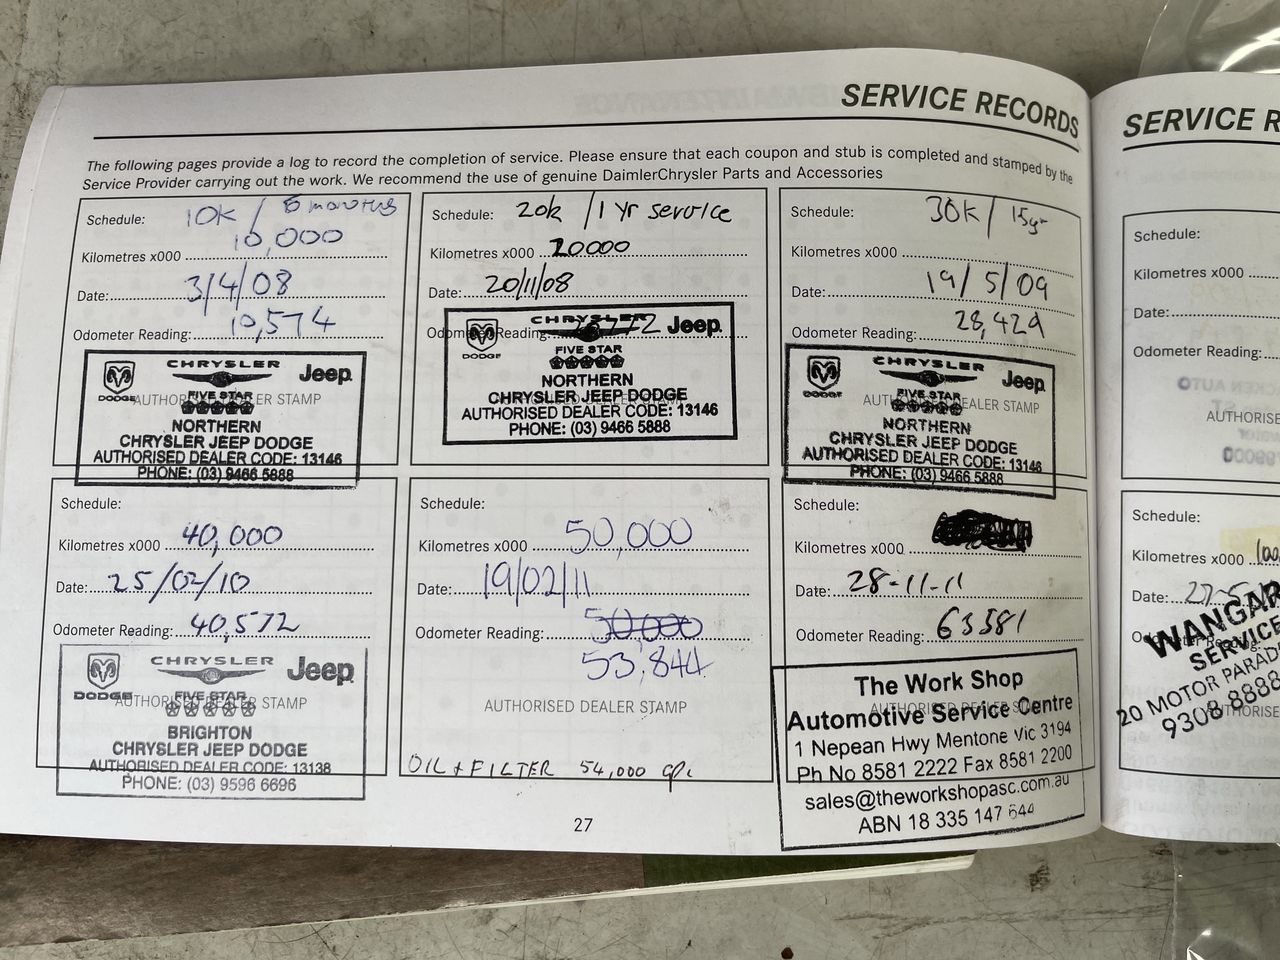 SERVICE RECORDS
The following pages provide a log to record the completion of service. Please ensure that each coupon and stub is completed and stamped by the
Service Provider carrying out the work. We recommend the use of genuine DaimlerChrysler Parts and Accessories
Schedule: 10K / 6 months
Kilometres x000 10,000
Date: 3/4/08
Odometer Reading: 10,574
CHRYSLER
Jeep
DODGE
FIVE STAR
AUTHORISED DEALER STAMP
NORTHERN
CHRYSLER JEEP DODGE
AUTHORISED DEALER CODE: 13146
PHONE: (03) 9466 5888
Schedule: 20k / 1 yr service
Kilometres x000 20000
Date: 20/11/08
Odometer Reading:
CHRYSLER
Jeep
DODGE
FIVE STAR
NORTHERN
CHRYSLER JEEP DODGE
AUTHORISED DEALER CODE: 13146
PHONE: (03) 9466 5888
Schedule: 30K / 15yr
Kilometres x000
Date: 19/5/09
Odometer Reading: 28,429
CHRYSLER
Jeep
DODGE
FIVE STAR
AUTHORISED DEALER STAMP
NORTHERN
CHRYSLER JEEP DODGE
AUTHORISED DEALER CODE: 13146
PHONE: (03) 9466 5888
Schedule:
Kilometres x000 40,000
Date: 25/02/10
Odometer Reading: 40,572
CHRYSLER
Jeep
DODGE
FIVE STAR
AUTHORISED DEALER STAMP
BRIGHTON
CHRYSLER JEEP DODGE
AUTHORISED DEALER CODE: 13138
PHONE: (03) 9596 6696
Schedule:
Kilometres x000 50,000
Date: 19/02/11
Odometer Reading: 50,000
53,844
AUTHORISED DEALER STAMP
OIL & FILTER 54,000
Schedule:
Kilometres x000
Date: 28-11-11
Odometer Reading: 63581
The Work Shop
Automotive Service Centre
1 Nepean Hwy Mentone Vic 3194
Ph No 8581 2222 Fax 8581 2200
sales@theworkshopasc.com.au
ABN 18 335 147 644
27
SERVICE R
Schedule:
Kilometres x000
Date:
Odometer Reading:
AUTHORISE
Schedule:
Kilometres x000
Date:
WANGAR
SERVICE
20 MOTOR PARAD
9308 8888